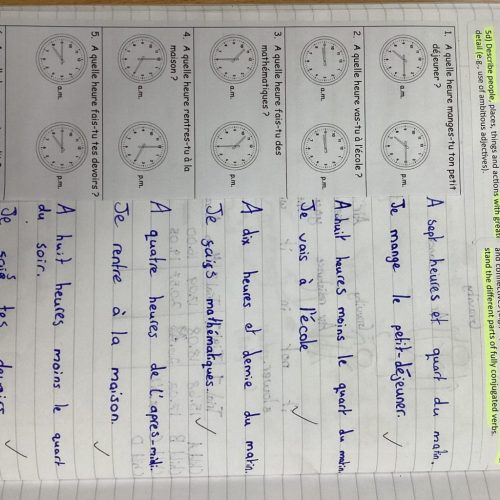 5d) Describe people, places, things and actions with great
detail (e.g., use of ambitious adjectives).
stand the different parts of fully conjugated verbs.
1. A quelle heure manges-tu ton petit
déjeuner ?
a.m. p.m.
A sept heures et quart du matin.
Je mange le petit-déjeuner.
2. A quelle heure vas-tu à l'école ?
a.m. p.m.
A huit heures moins le quart du matin.
Je vais à l'école
3. A quelle heure fais-tu des
mathématiques ?
a.m. p.m.
A dix heures et demie du matin.
Je mathématiques.
4. A quelle heure rentres-tu à la
maison ?
a.m. p.m.
A quatre heures de l'apres-midi.
Je rentre à la maison.
5. A quelle heure fais-tu tes devoirs ?
a.m. p.m.
A huit heures moins le quart
du soir.
Je tes devoirs